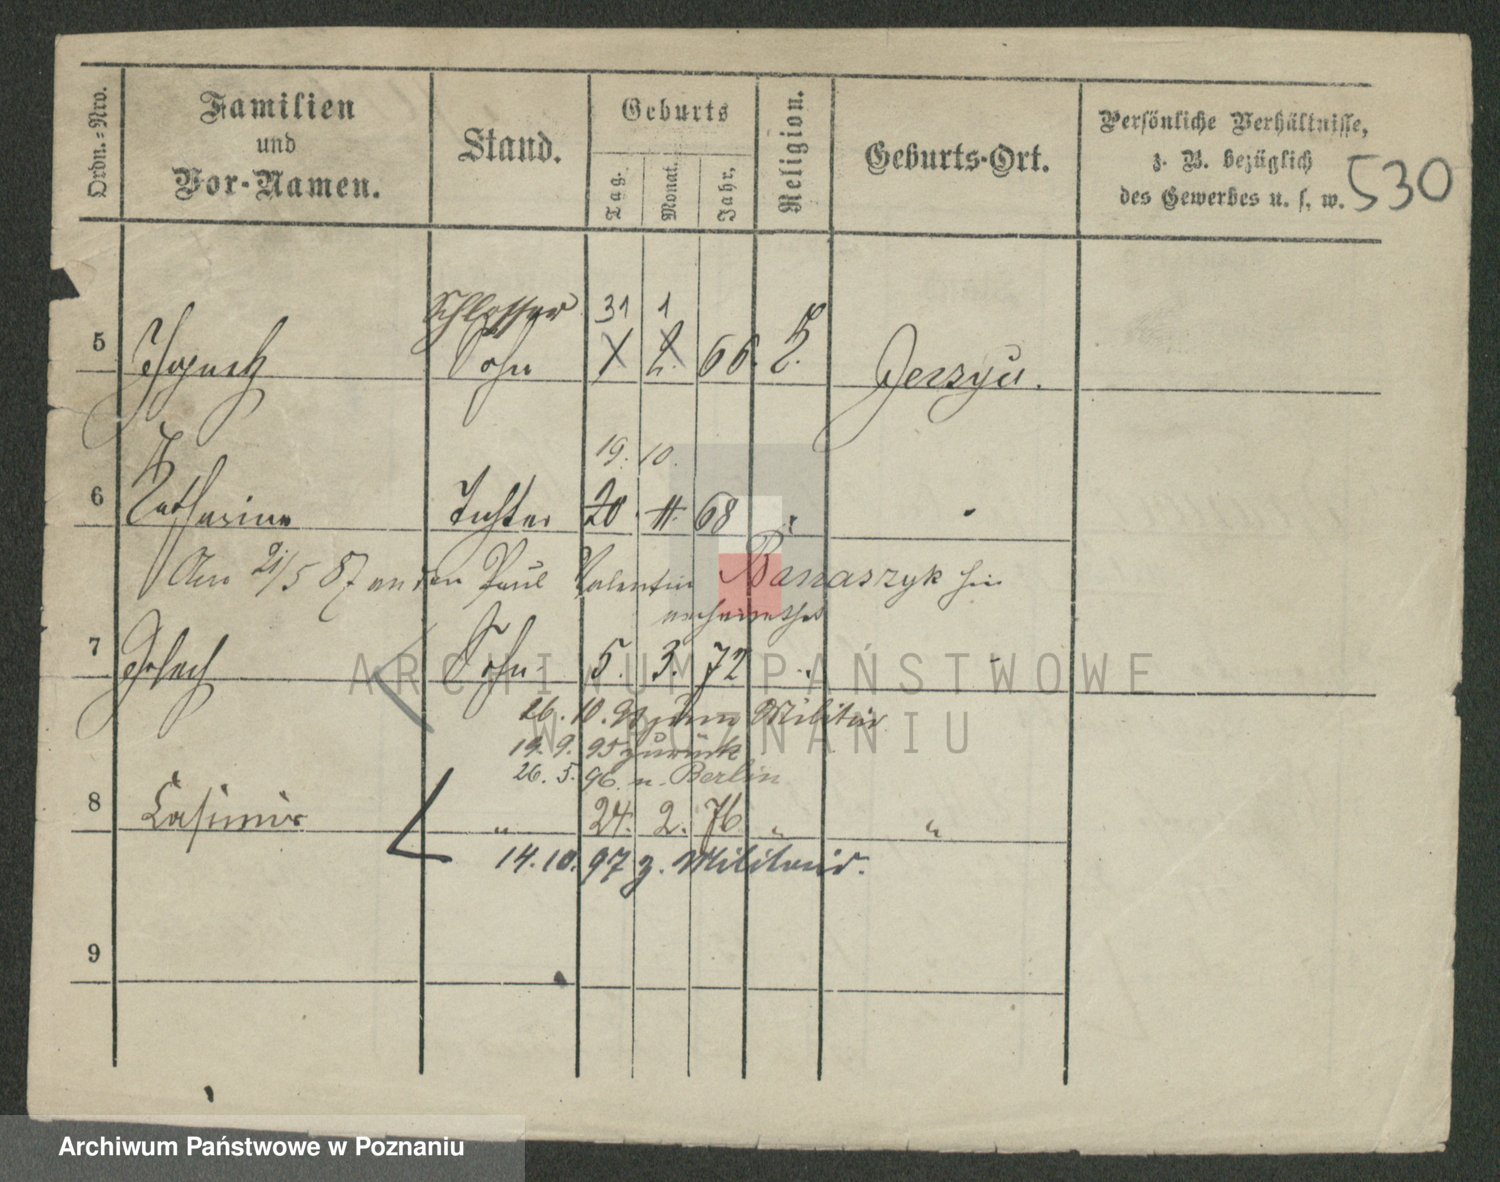 Ordn.=Nro.
Familien
und
Vor-Namen.
Stand.
Geburts
Tag.
Monat.
Jahr.
Religion.
Geburts-Ort.
Persönliche Verhältnisse,
z. B. bezüglich
des Gewerbes u. s. w.
530
Schlosser 31 1
5 Sohn 1 2. 66. k. Jerzyce.
19. 10.
6 Katharina Tochter 20. 11. 68 " "
Am 21/5 87 an den Paul Valentin Banaszyk hier
verheirathet
7 Sohn 5. 3. 72 "
26. 10. 93 zum Militär
19. 9. 95 zurück
26. 5. 96. n. Berlin
8 Casimir " 24. 2. 76 " "
14. 10. 97 z. Militair.
9
ARCHIWUM PAŃSTWOWE
W POZNANIU
Archiwum Państwowe w Poznaniu